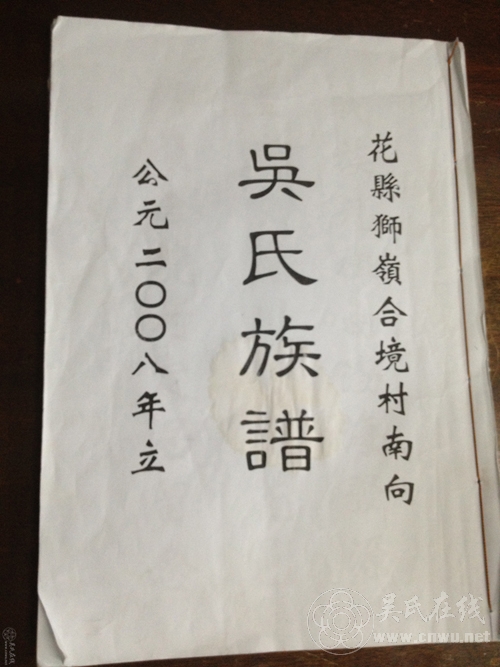 花縣獅嶺合境村南向
吳氏族譜
公元二〇〇八年立
吴氏在线
www.cnwu.net